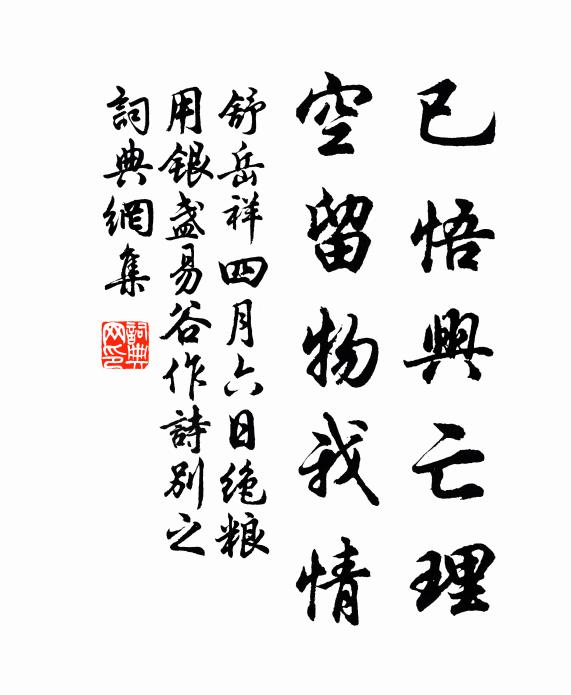 已悟興亡理
空留物我情
舒岳祥四月六日绝粮
用銀盏易谷作詩别之
詞典網集
詞典网印